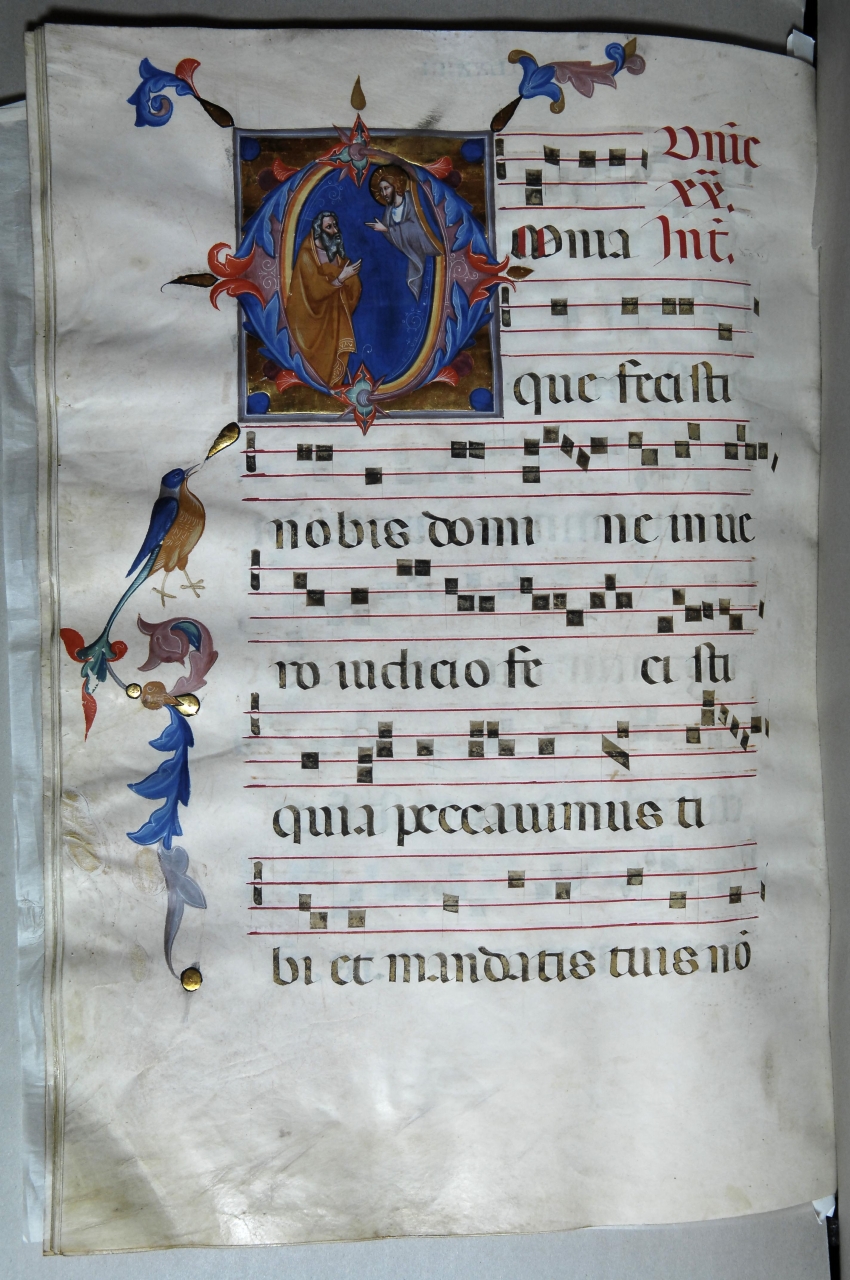 Dñic
xx.
Omnia Int̄.
que fecisti
nobis domi ne in ue
ro iudicio fe ci sti
quia peccauimus ti
bi et mandatis tuis nō